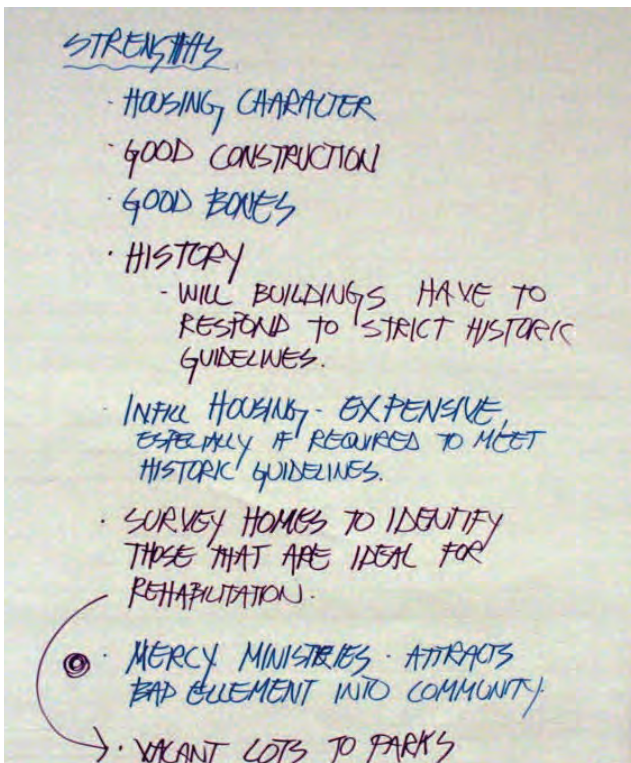 STRENGTHS
· HOUSING CHARACTER
· GOOD CONSTRUCTION
· GOOD BONES
· HISTORY
- WILL BUILDINGS HAVE TO
RESPOND TO STRICT HISTORIC
GUIDELINES.
· INFILL HOUSING - EXPENSIVE,
ESPECIALLY IF REQUIRED TO MEET
HISTORIC GUIDELINES.
· SURVEY HOMES TO IDENTIFY
THOSE THAT ARE IDEAL FOR
REHABILITATION.
· MERCY MINISTRIES - ATTRACTS
BAD ELLEMENT INTO COMMUNITY.
· VACANT LOTS TO PARKS